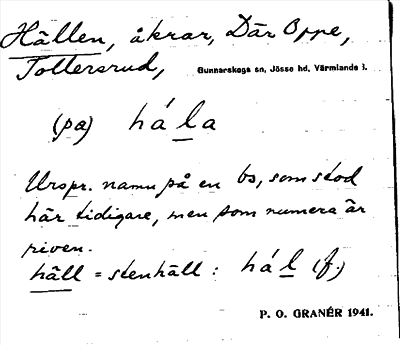 Hällen, åkrar, Där Oppe,
Tollersrud,
Gunnarskogs sn, Jösse hd, Värmlands l.
(pa) há l̲a
Urspr. namn på en bs, som stod
här tidigare, men som numera är
riven.
häll = stenhäll : há l̲ (f.)
P. O. GRANÉR 1941.